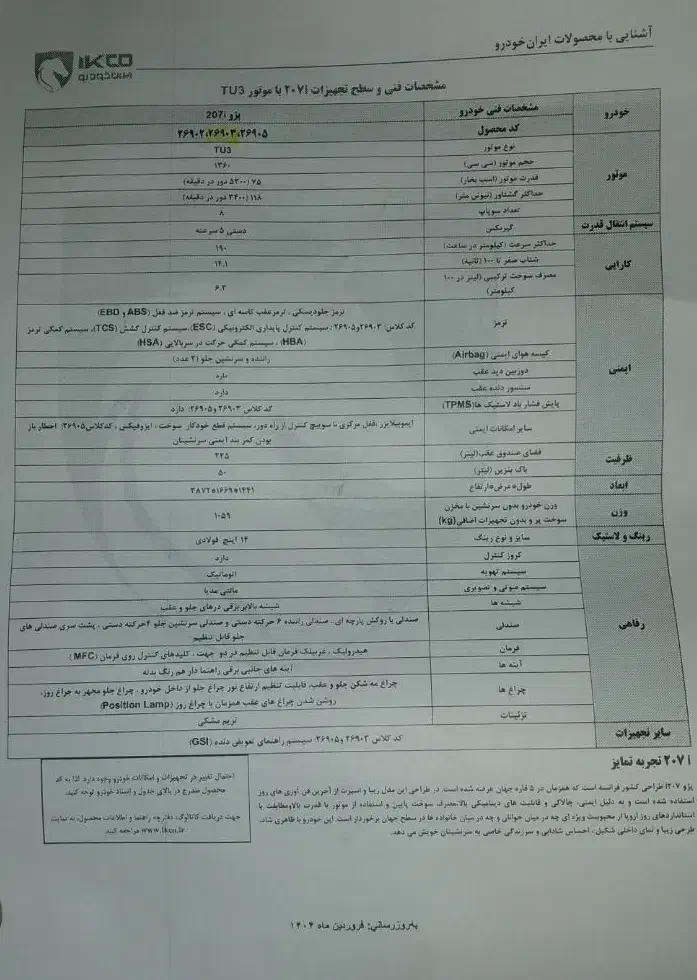 آشنایی با محصولات ایران‌خودرو
IKCO
ایران‌خودرو
مشخصات فنی و سطح تجهیزات ۲۰۷i با موتور TU3
خودرو
مشخصات فنی خودرو
پژو 207i
کد محصول
۲۶۹۰۲،۲۶۹۰۳،۲۶۹۰۵
موتور
نوع موتور
TU3
حجم موتور (سی سی)
۱۳۶۰
قدرت موتور (اسب بخار)
۷۵ (۵۳۰۰ دور در دقیقه)
حداکثر گشتاور (نیوتن متر)
۱۱۸ (۳۴۰۰ دور در دقیقه)
تعداد سوپاپ
۸
سیستم انتقال قدرت
گیربکس
دستی ۵ سرعته
کارایی
حداکثر سرعت (کیلومتر در ساعت)
۱۹۰
شتاب صفر تا ۱۰۰ (ثانیه)
۱۴.۱
مصرف سوخت ترکیبی (لیتر در ۱۰۰
کیلومتر)
۶.۳
ایمنی
ترمز
ترمز جلودیسکی ، ترمزعقب کاسه ای ، سیستم ترمز ضد قفل (ABS و EBD)
کد کلاس ۲۶۹۰۳ و۲۶۹۰۵ : سیستم کنترل پایداری الکترونیکی (ESC)،سیستم کنترل کشش (TCS)، سیستم کمکی ترمز
(HBA) ، سیستم کمکی حرکت در سربالایی (HSA)
کیسه هوای ایمنی (Airbag)
راننده و سرنشین جلو (۲ عدد)
دوربین دید عقب
دارد
سنسور دنده عقب
دارد
پایش فشار باد لاستیک ها(TPMS)
کد کلاس ۲۶۹۰۳ و۲۶۹۰۵: دارد
سایر امکانات ایمنی
ایموبیلایزر ،قفل مرکزی با سوییچ کنترل از راه دور، سیستم قطع خودکار سوخت ، ایزوفیکس ، کدکلاس۲۶۹۰۵: اخطار باز
بودن کمر بند ایمنی سرنشینان
ظرفیت
فضای صندوق عقب(لیتر)
۲۲۵
باک بنزین (لیتر)
۵۰
ابعاد
طول*عرض*ارتفاع
۳۸۷۲*۱۶۶۹*۱۴۴۱
وزن
وزن خودرو بدون سرنشین با مخزن
سوخت پر و بدون تجهیزات اضافی(kg)
۱۰۵۹
رینگ و لاستیک
سایز و نوع رینگ
۱۴ اینچ فولادی
رفاهی
کروز کنترل
دارد
سیستم تهویه
اتوماتیک
سیستم صوتی و تصویری
مالتی مدیا
شیشه ها
شیشه بالابربرقی درهای جلو و عقب
صندلی
صندلی با روکش پارچه ای ، صندلی راننده ۶ حرکته دستی و صندلی سرنشین جلو ۴حرکته دستی ، پشت سری صندلی های
جلو قابل تنظیم
فرمان
هیدرولیک ، غربیلک فرمان قابل تنظیم در دو جهت ، کلیدهای کنترل روی فرمان (MFC)
آینه ها
آینه های جانبی برقی راهنما دار هم رنگ بدنه
چراغ ها
چراغ مه شکن جلو و عقب، قابلیت تنظیم ارتفاع نور چراغ جلو از داخل خودرو ، چراغ جلو مجهز به چراغ روز،
روشن شدن چراغ های عقب همزمان با چراغ روز (Position Lamp)
تزئینات
تریم مشکی
سایر تجهیزات
کد کلاس ۲۶۹۰۳ و۲۶۹۰۵: سیستم راهنمای تعویض دنده (GSI)
۲۰۷ i تجربه تمایز
پژو ۲۰۷i طراحی کشور فرانسه است که همزمان در ۵ قاره جهان عرضه شده است. در طراحی این مدل زیبا و اسپرت از آخرین فن آوری های روز
استفاده شده است و به دلیل ایمنی، چالاکی و قابلیت های دینامیکی بالا،مصرف سوخت پایین و استفاده از موتور با قدرت بالاومطابقت با
استانداردهای روز اروپا از محبوبیت ویژه ای چه در میان جوانان و چه در میان خانواده ها در سطح جهان برخوردار است. این خودرو با ظاهری شاد،
طرحی زیبا و نمای داخلی شکیل ، احساس شادابی و سرزندگی خاصی به سرنشینان خویش می دهد.
احتمال تغییر در تجهیزات و امکانات خودرو وجود دارد. لذا به کد
محصول مندرج در بالای جدول و اسناد خودرو توجه کنید.
جهت دریافت کاتالوگ، دفترچه راهنما و اطلاعات محصول، به سایت
www.ikco.ir مراجعه کنید.
به‌روزرسانی: فروردین ماه ۱۴۰۴